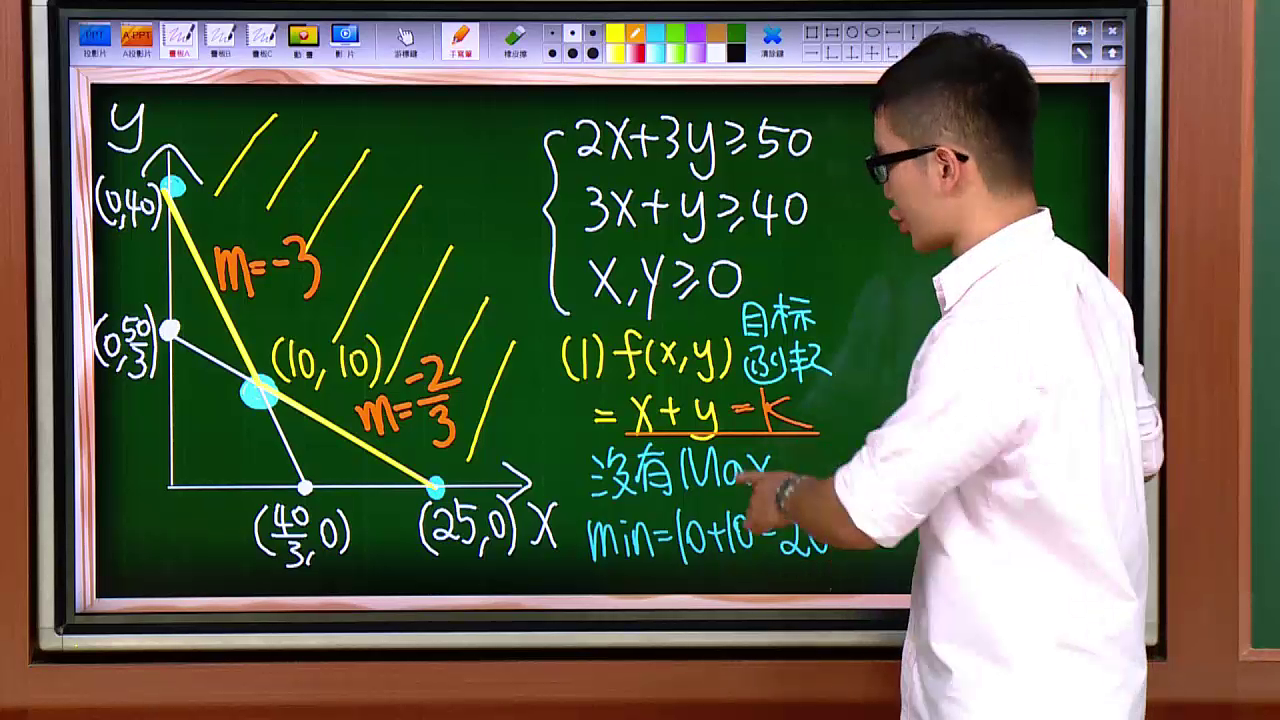 PPT A-PPT
投影片 A投影片 電板A 電板B 電板C 動畫 影片 游標鍵 手寫筆 橡皮擦 清除鍵
y
(0,40)
m=-3
(0,50/3)
(10,10)
m=-2/3
(40/3,0)
(25,0)
X
2X+3y≥50
3X+y≥40
X,y≥0
目标
(1) f(x,y)
= x+y=K
沒有Max
min=10+10=20